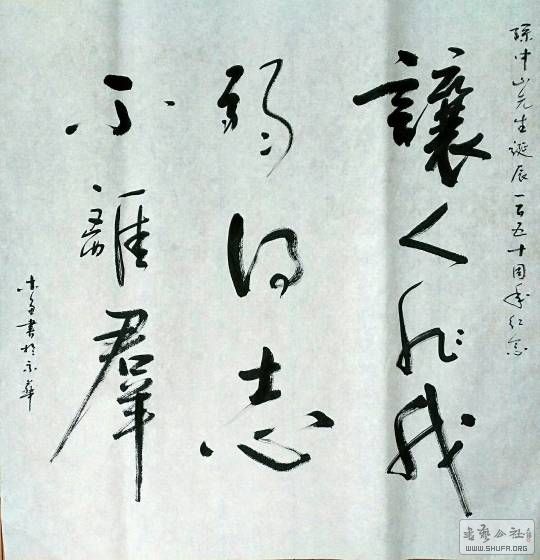 孫中山先生誕辰一百五十周年纪念
讓人非我
弱得志
不離羣
書於京華
書艺公社
WWW.SHUFA.ORG